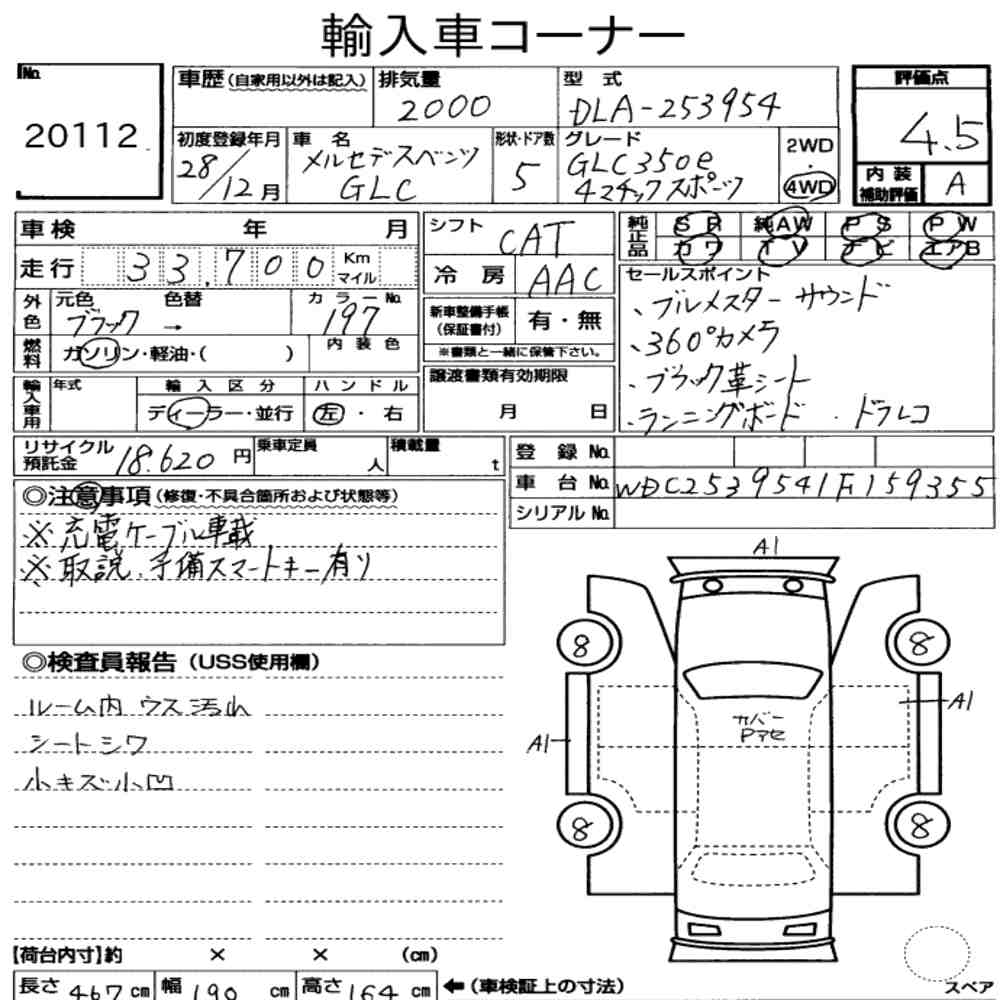 輸入車コーナー
No. 20112
車歴(自家用以外は記入)
排気量 2000
型式 DLA-253954
評価点 4.5
初度登録年月 28/12月
車名 メルセデスベンツ GLC
形状・ドア数 5
グレード GLC350e 4マチックスポーツ
2WD
4WD
内装補助評価 A
車検 年 月
走行 33,700 Km マイル
シフト CAT
冷房 AAC
純正品 SR 純AW PS PW
カワ TV ナビ エアB
外色 元色 ブラック → 色替
カラーNo. 197
燃料 ガソリン・軽油・( )
内装色
新車整備手帳(保証書付) 有・無
※書類と一緒に保管下さい。
セールスポイント
、ブルメスターサウンド
、360°カメラ
、ブラック革シート
、ランニングボード . ドラレコ
輸入車用 年式
輸入区分 ディーラー・並行
ハンドル 左・右
譲渡書類有効期限
月 日
リサイクル預託金 18.620円
乗車定員 人
積載量 t
登録No.
車台No. WDC2539541F159355
シリアルNo.
◎注意事項(修復・不具合箇所および状態等)
※充電ケーブル車載
※取説、予備スマートキー有り
◎検査員報告(USS使用欄)
ルーム内 ウス汚れ
シートシワ
小キズ小凹
A1
8
8
カバー
Pアセ
A1
A1
8
8
【荷台内寸】約 × × (cm)
長さ 467 cm 幅 190 cm 高さ 164 cm ←(車検証上の寸法)
スペア